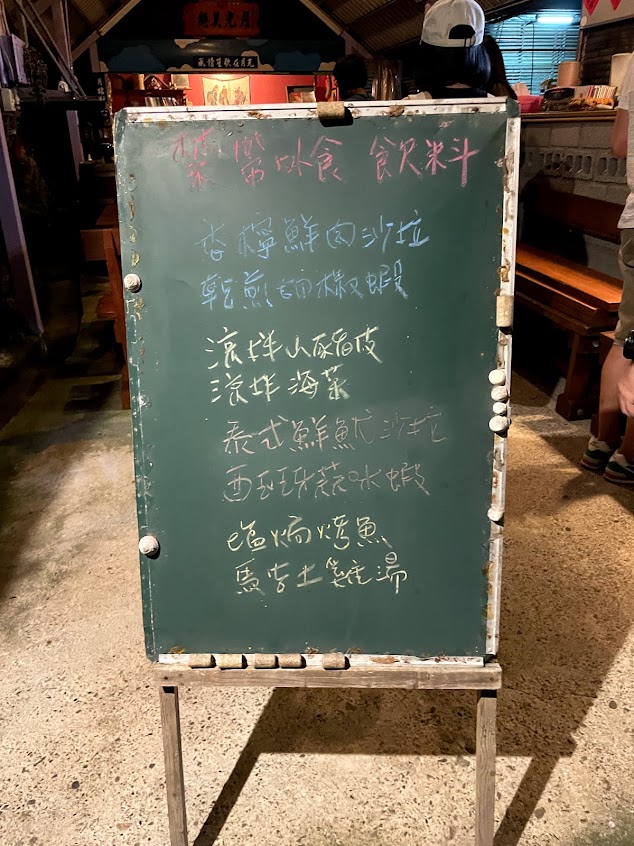 禁帶外食 飲料
香檸鮮肉沙拉
乾煎胡椒蝦
涼拌山豬皮
涼拌海菜
泰式鮮魷沙拉
西班牙蒜味蝦
塩焗烤魚
馬告土雞湯